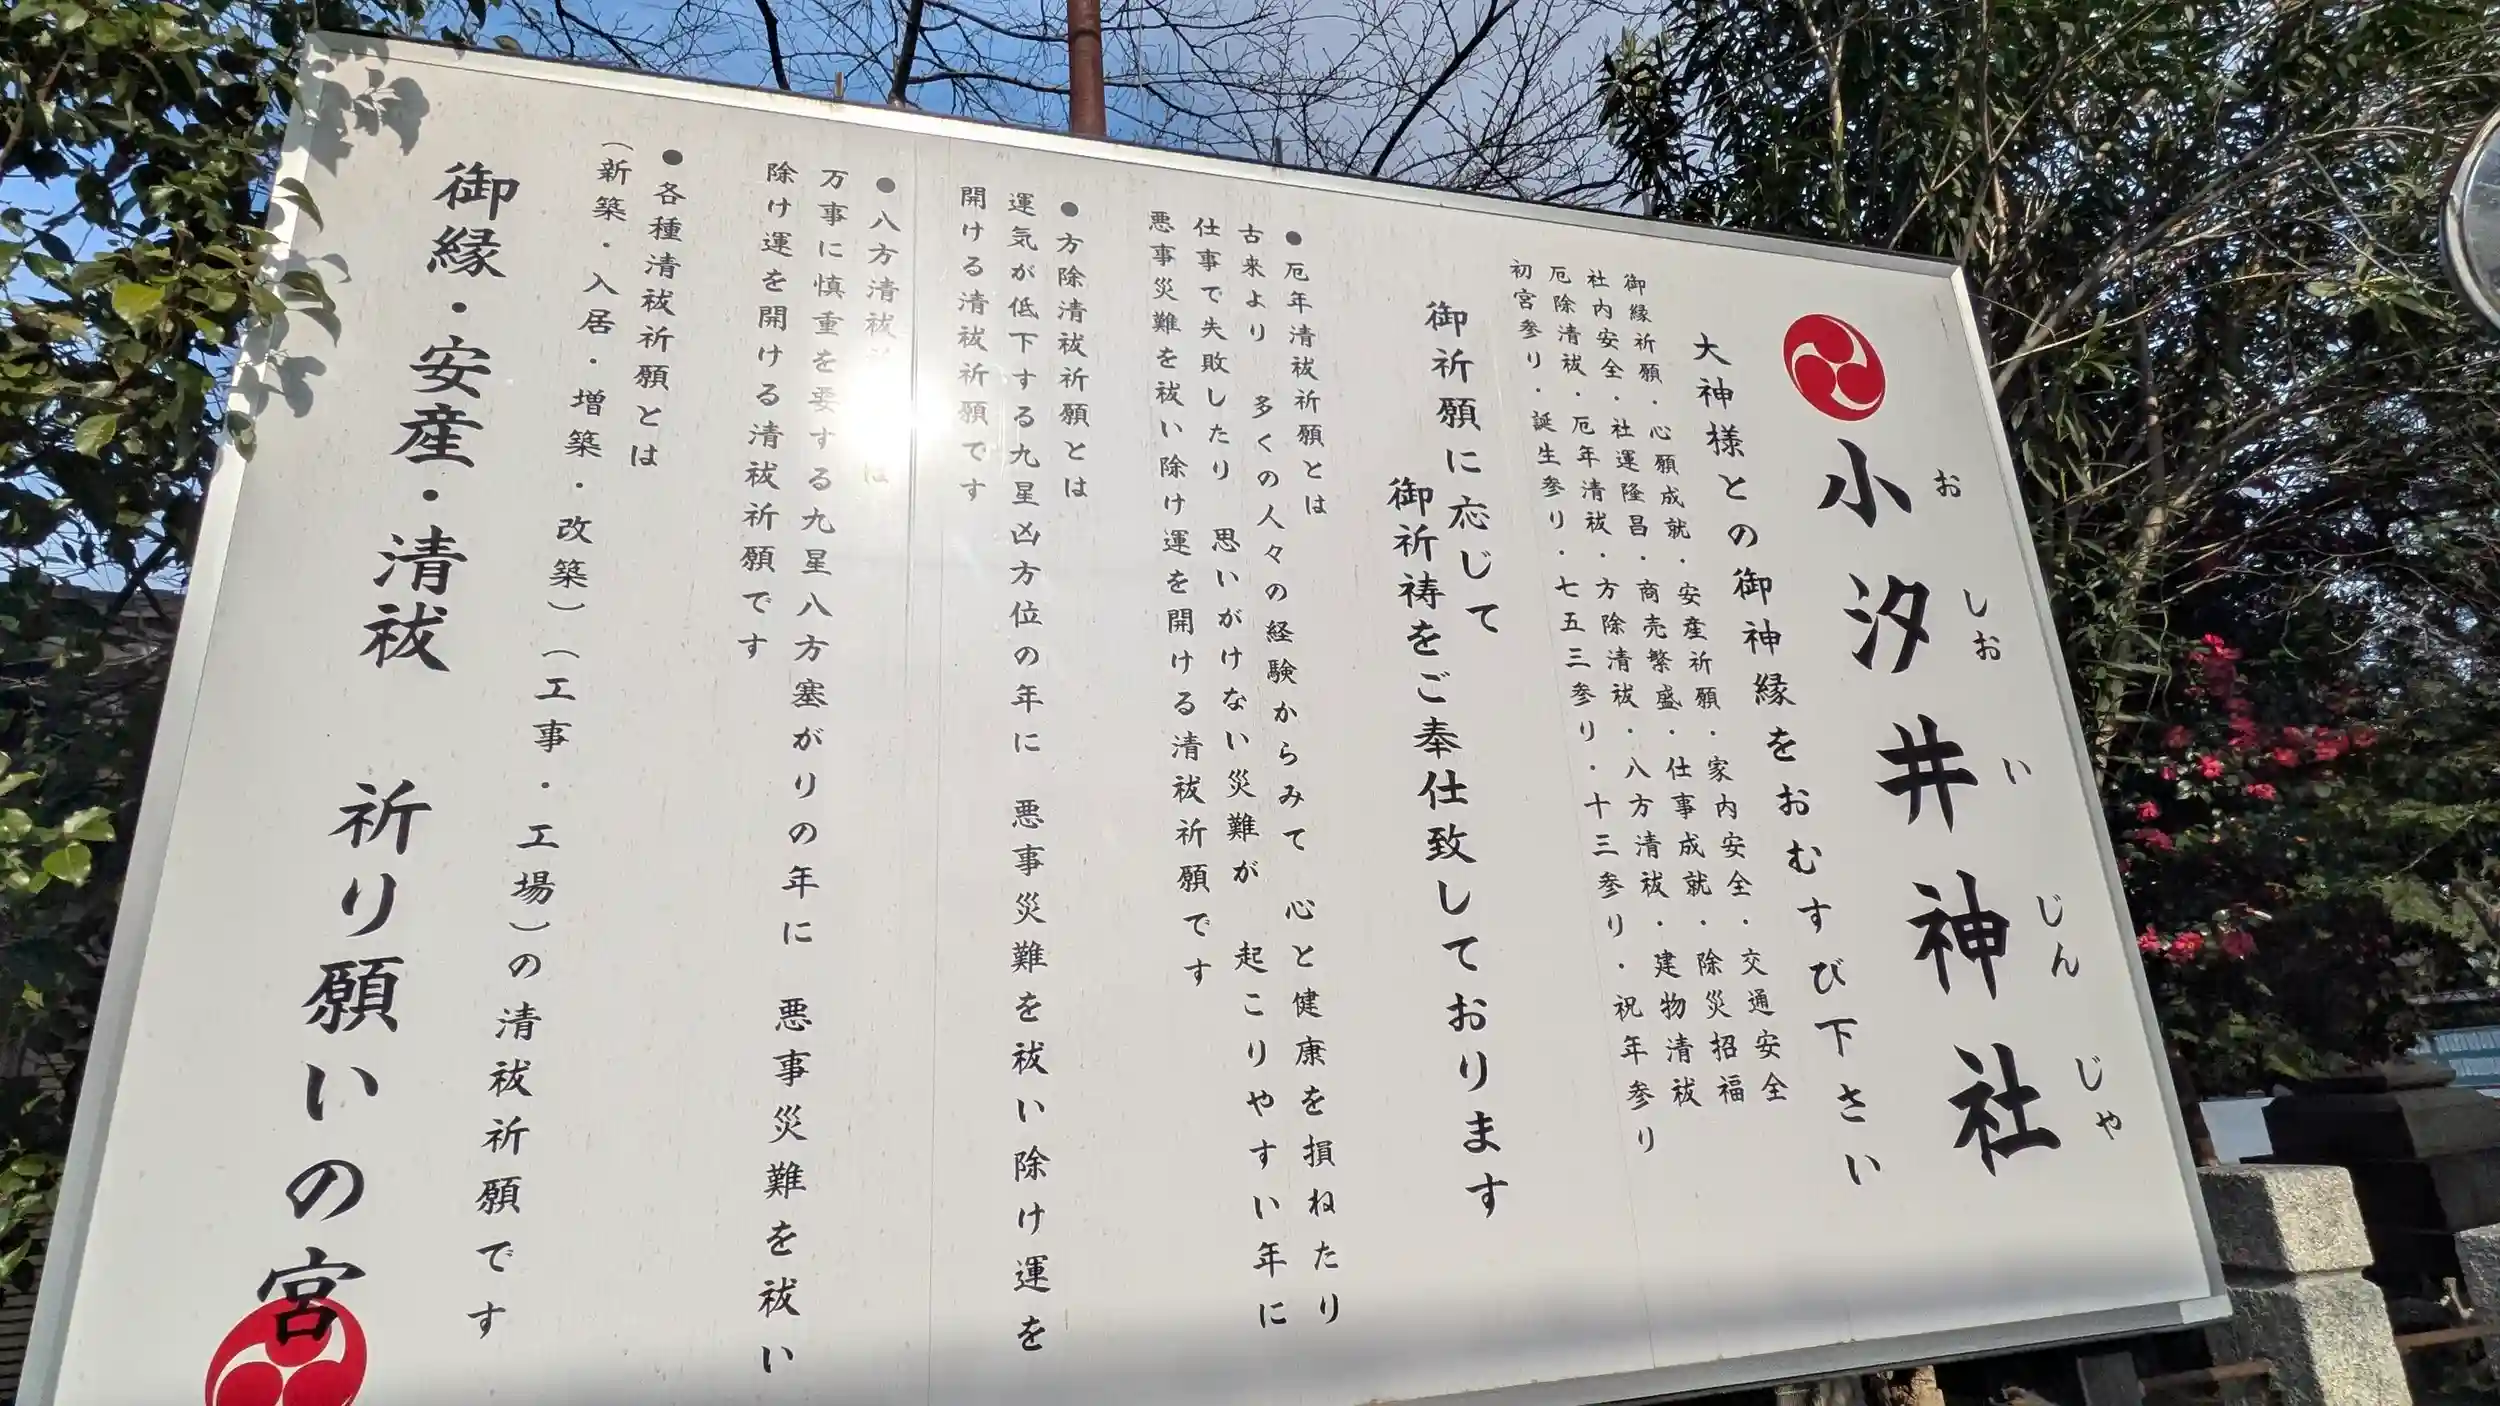 小汐井神社
お しお い じん じゃ
大神様との御神縁をおむすび下さい
御縁祈願・心願成就・安産祈願・家内安全・交通安全
社内安全・社運隆昌・商売繁盛・仕事成就・除災招福
厄除清祓・厄年清祓・方除清祓・八方清祓・建物清祓
初宮参り・誕生参り・七五三参り・十三参り・祝年参り
御祈願に応じて
御祈祷をご奉仕致しております
●厄年清祓祈願とは
古来より 多くの人々の経験からみて 心と健康を損ねたり
仕事で失敗したり 思いがけない災難が 起こりやすい年に
悪事災難を祓い除け運を開ける清祓祈願です
●方除清祓祈願とは
運気が低下する九星凶方位の年に 悪事災難を祓い除け運を
開ける清祓祈願です
●八方清祓 は
万事に慎重を要する九星八方塞がりの年に 悪事災難を祓い
除け運を開ける清祓祈願です
●各種清祓祈願とは
（新築・入居・増築・改築）（工事・工場）の清祓祈願です
御縁・安産・清祓 祈り願いの宮